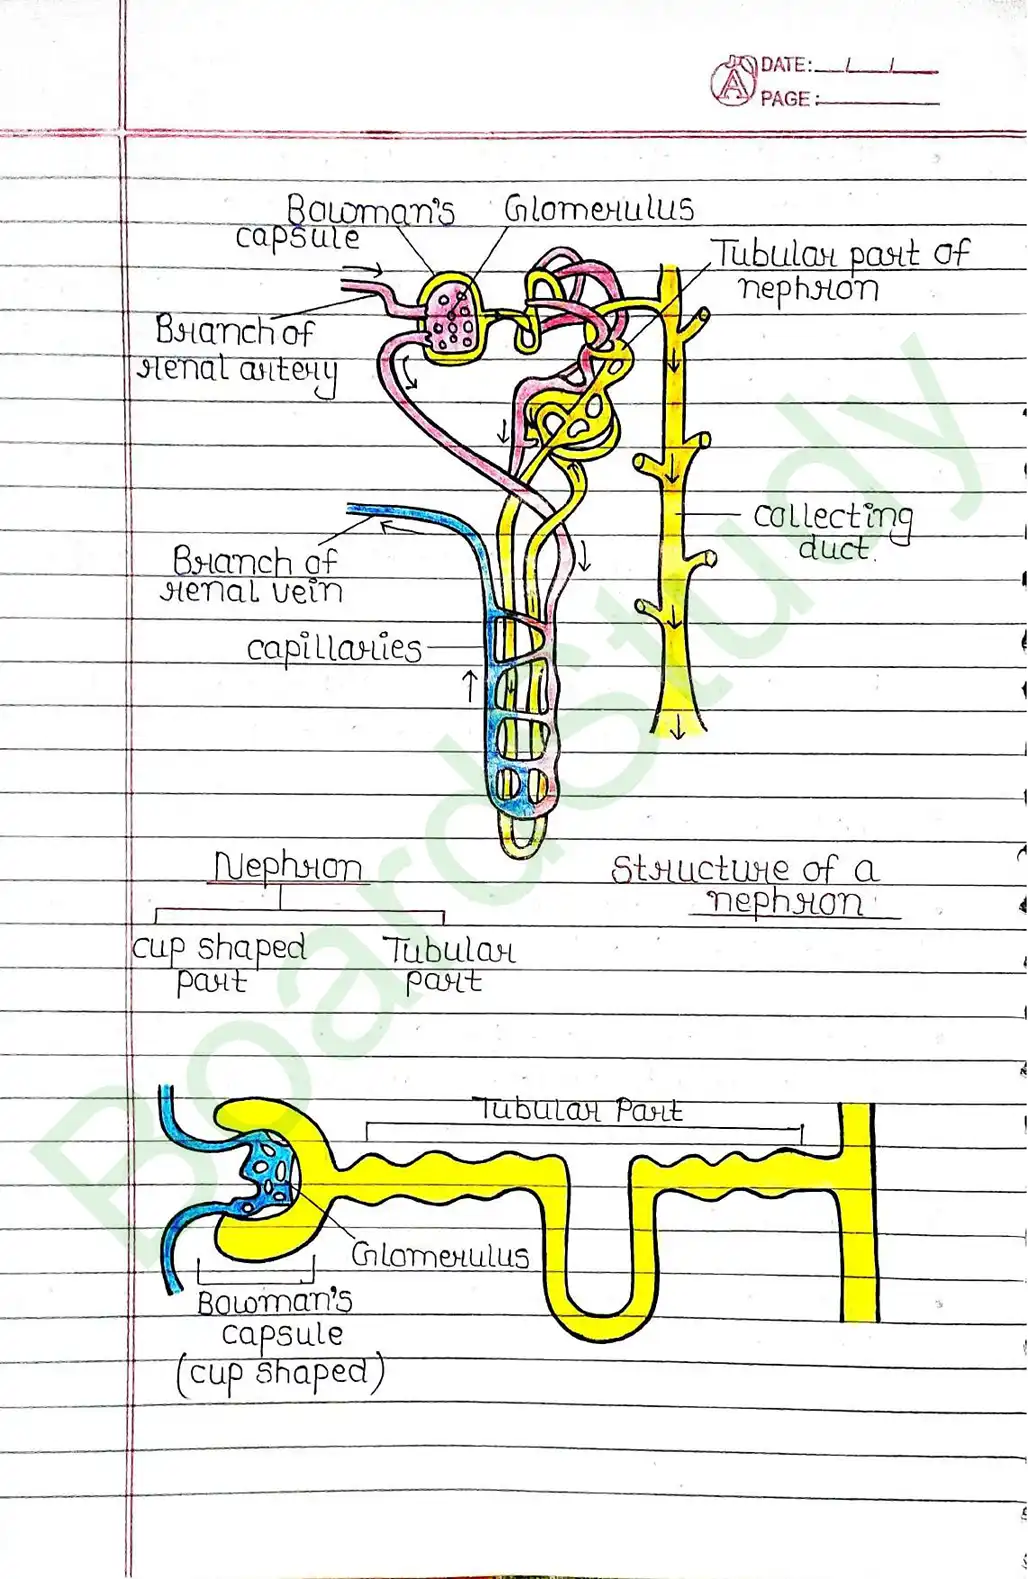 DATE:
PAGE:
Bowman's
capsule
Glomerulus
Tubular part of
nephron
Branch of
renal artery
collecting
duct.
Branch of
renal vein
capillaries
Nephron
cup shaped
part
Tubular
part
Structure of a
nephron
Tubular Part
Glomerulus
Bowman's
capsule
(cup shaped)
BoardStudy